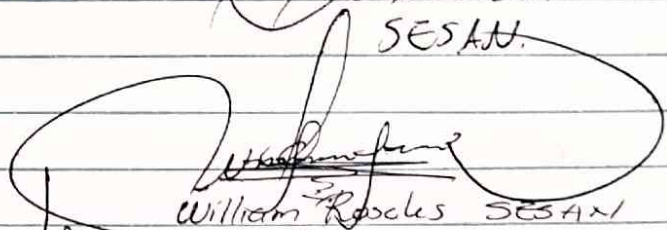 SESAN.
William Rosales SESAN